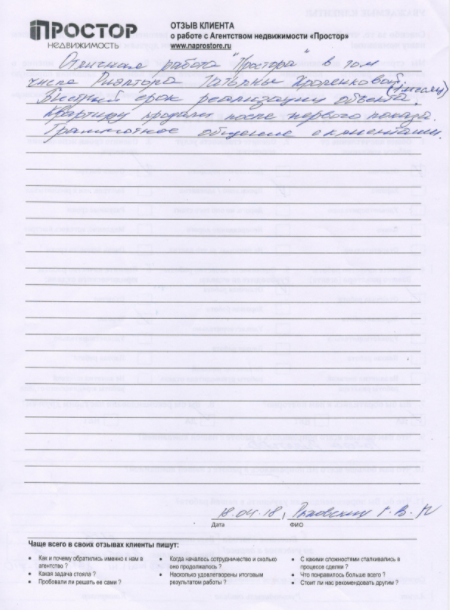 ПРОСТОР
НЕДВИЖИМОСТЬ
ОТЗЫВ КЛИЕНТА
о работе с Агентством недвижимости «Простор»
www.naprostore.ru
Отличная работа "Простора" в том
числе Риэлтора Татьяны Хроленковой.
Быстрый срок реализации объекта.
Квартиру продали после первого показа.
Грамотное общение с клиентами.
18.04.18,
Дата
ФИО
Чаще всего в своих отзывах клиенты пишут:
• Как и почему обратились именно к нам в агентство ?
• Какая задача стояла ?
• Пробовали ли решать ее сами ?
• Когда началось сотрудничество и сколько оно продолжалось ?
• Насколько удовлетворены итоговым результатом работы ?
• С какими сложностями сталкивались в процессе сделки ?
• Что понравилось больше всего ?
• Стоит ли нас рекомендовать другим ?